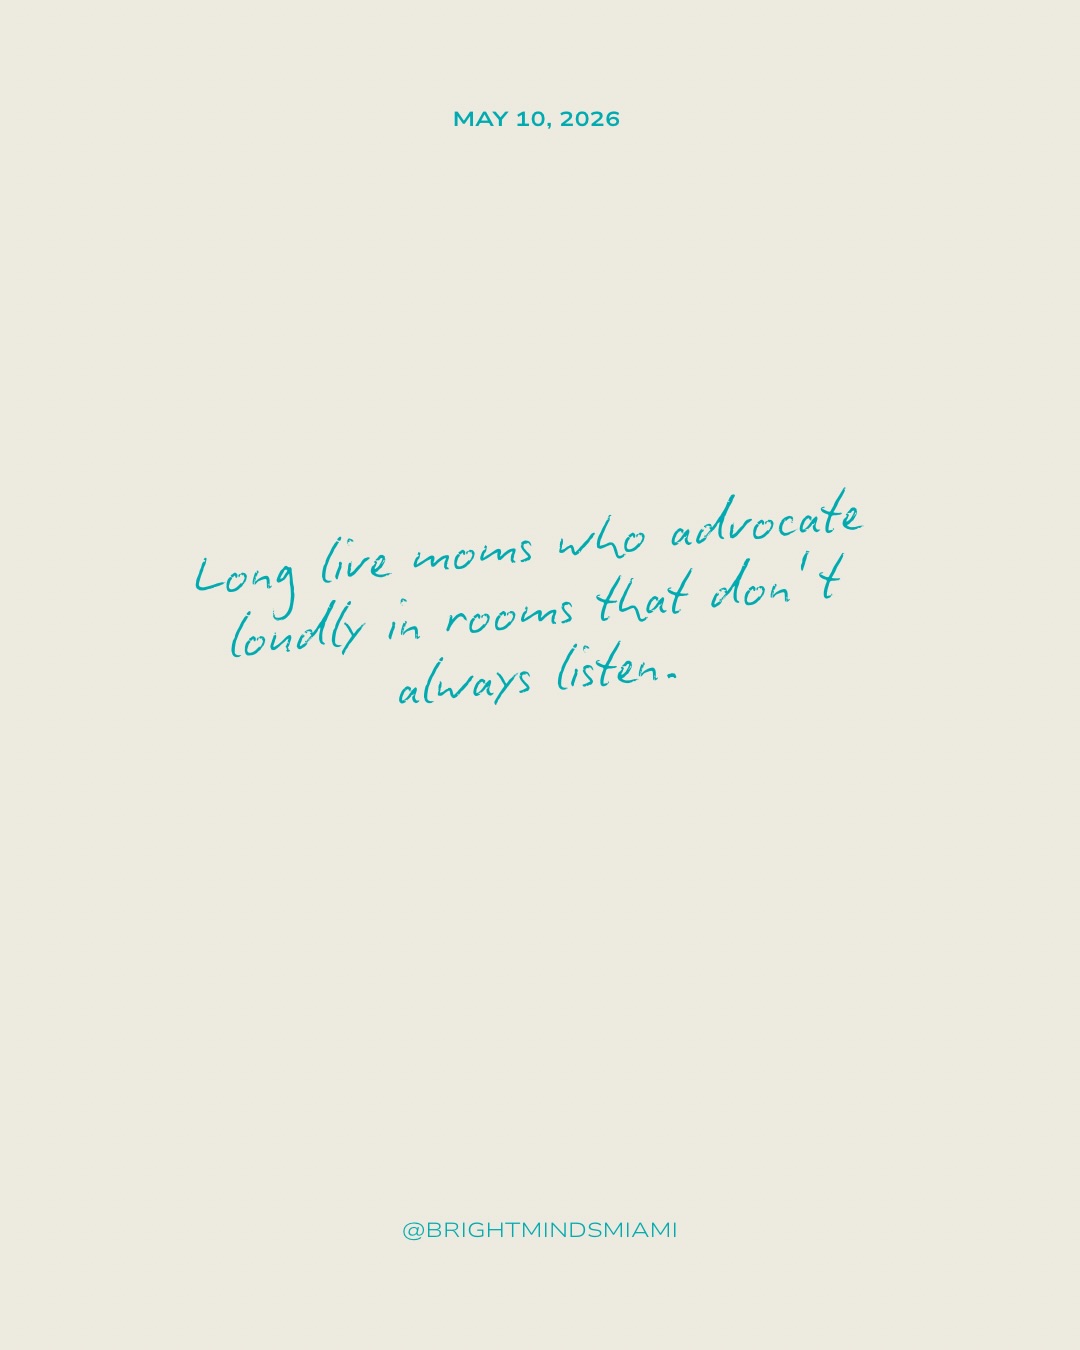 MAY 10, 2026
Long live moms who advocate
loudly in rooms that don't
always listen.
@BRIGHTMINDSMIAMI